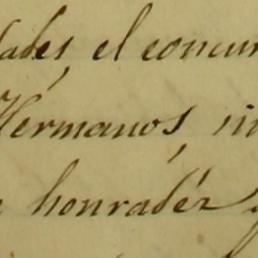 dades, el concur
Hermanos, in
honradéz y